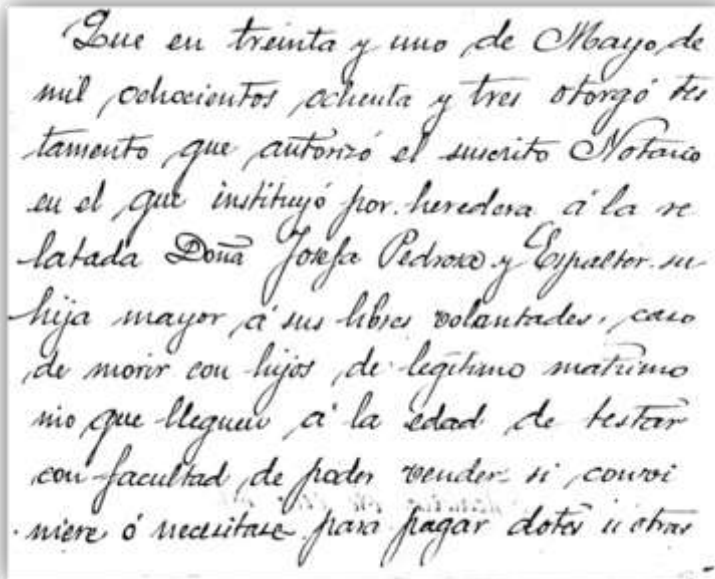 Que en treinta y uno de Mayo de
mil ochocientos ochenta y tres otorgó tes
tamento que autorizó el suscrito Notario
en el que instituyó por heredera á la re
latada Doña Josefa Pedrosa y Espalter su
hija mayor á sus libres volantades, caso
de morir con hijos de legítimo matrimo
nio que lleguen á la edad de testar
con facultad de poder vender si convi
niere ó necesitase para pagar dotes ú otras